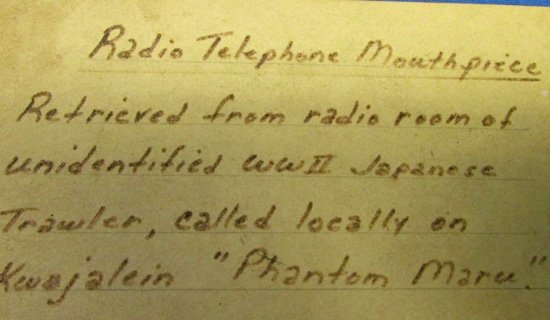 Radio Telephone Mouthpiece
Retrieved from radio room of
unidentified WWII Japanese
Trawler, called locally on
Kwajalein "Phantom Maru."